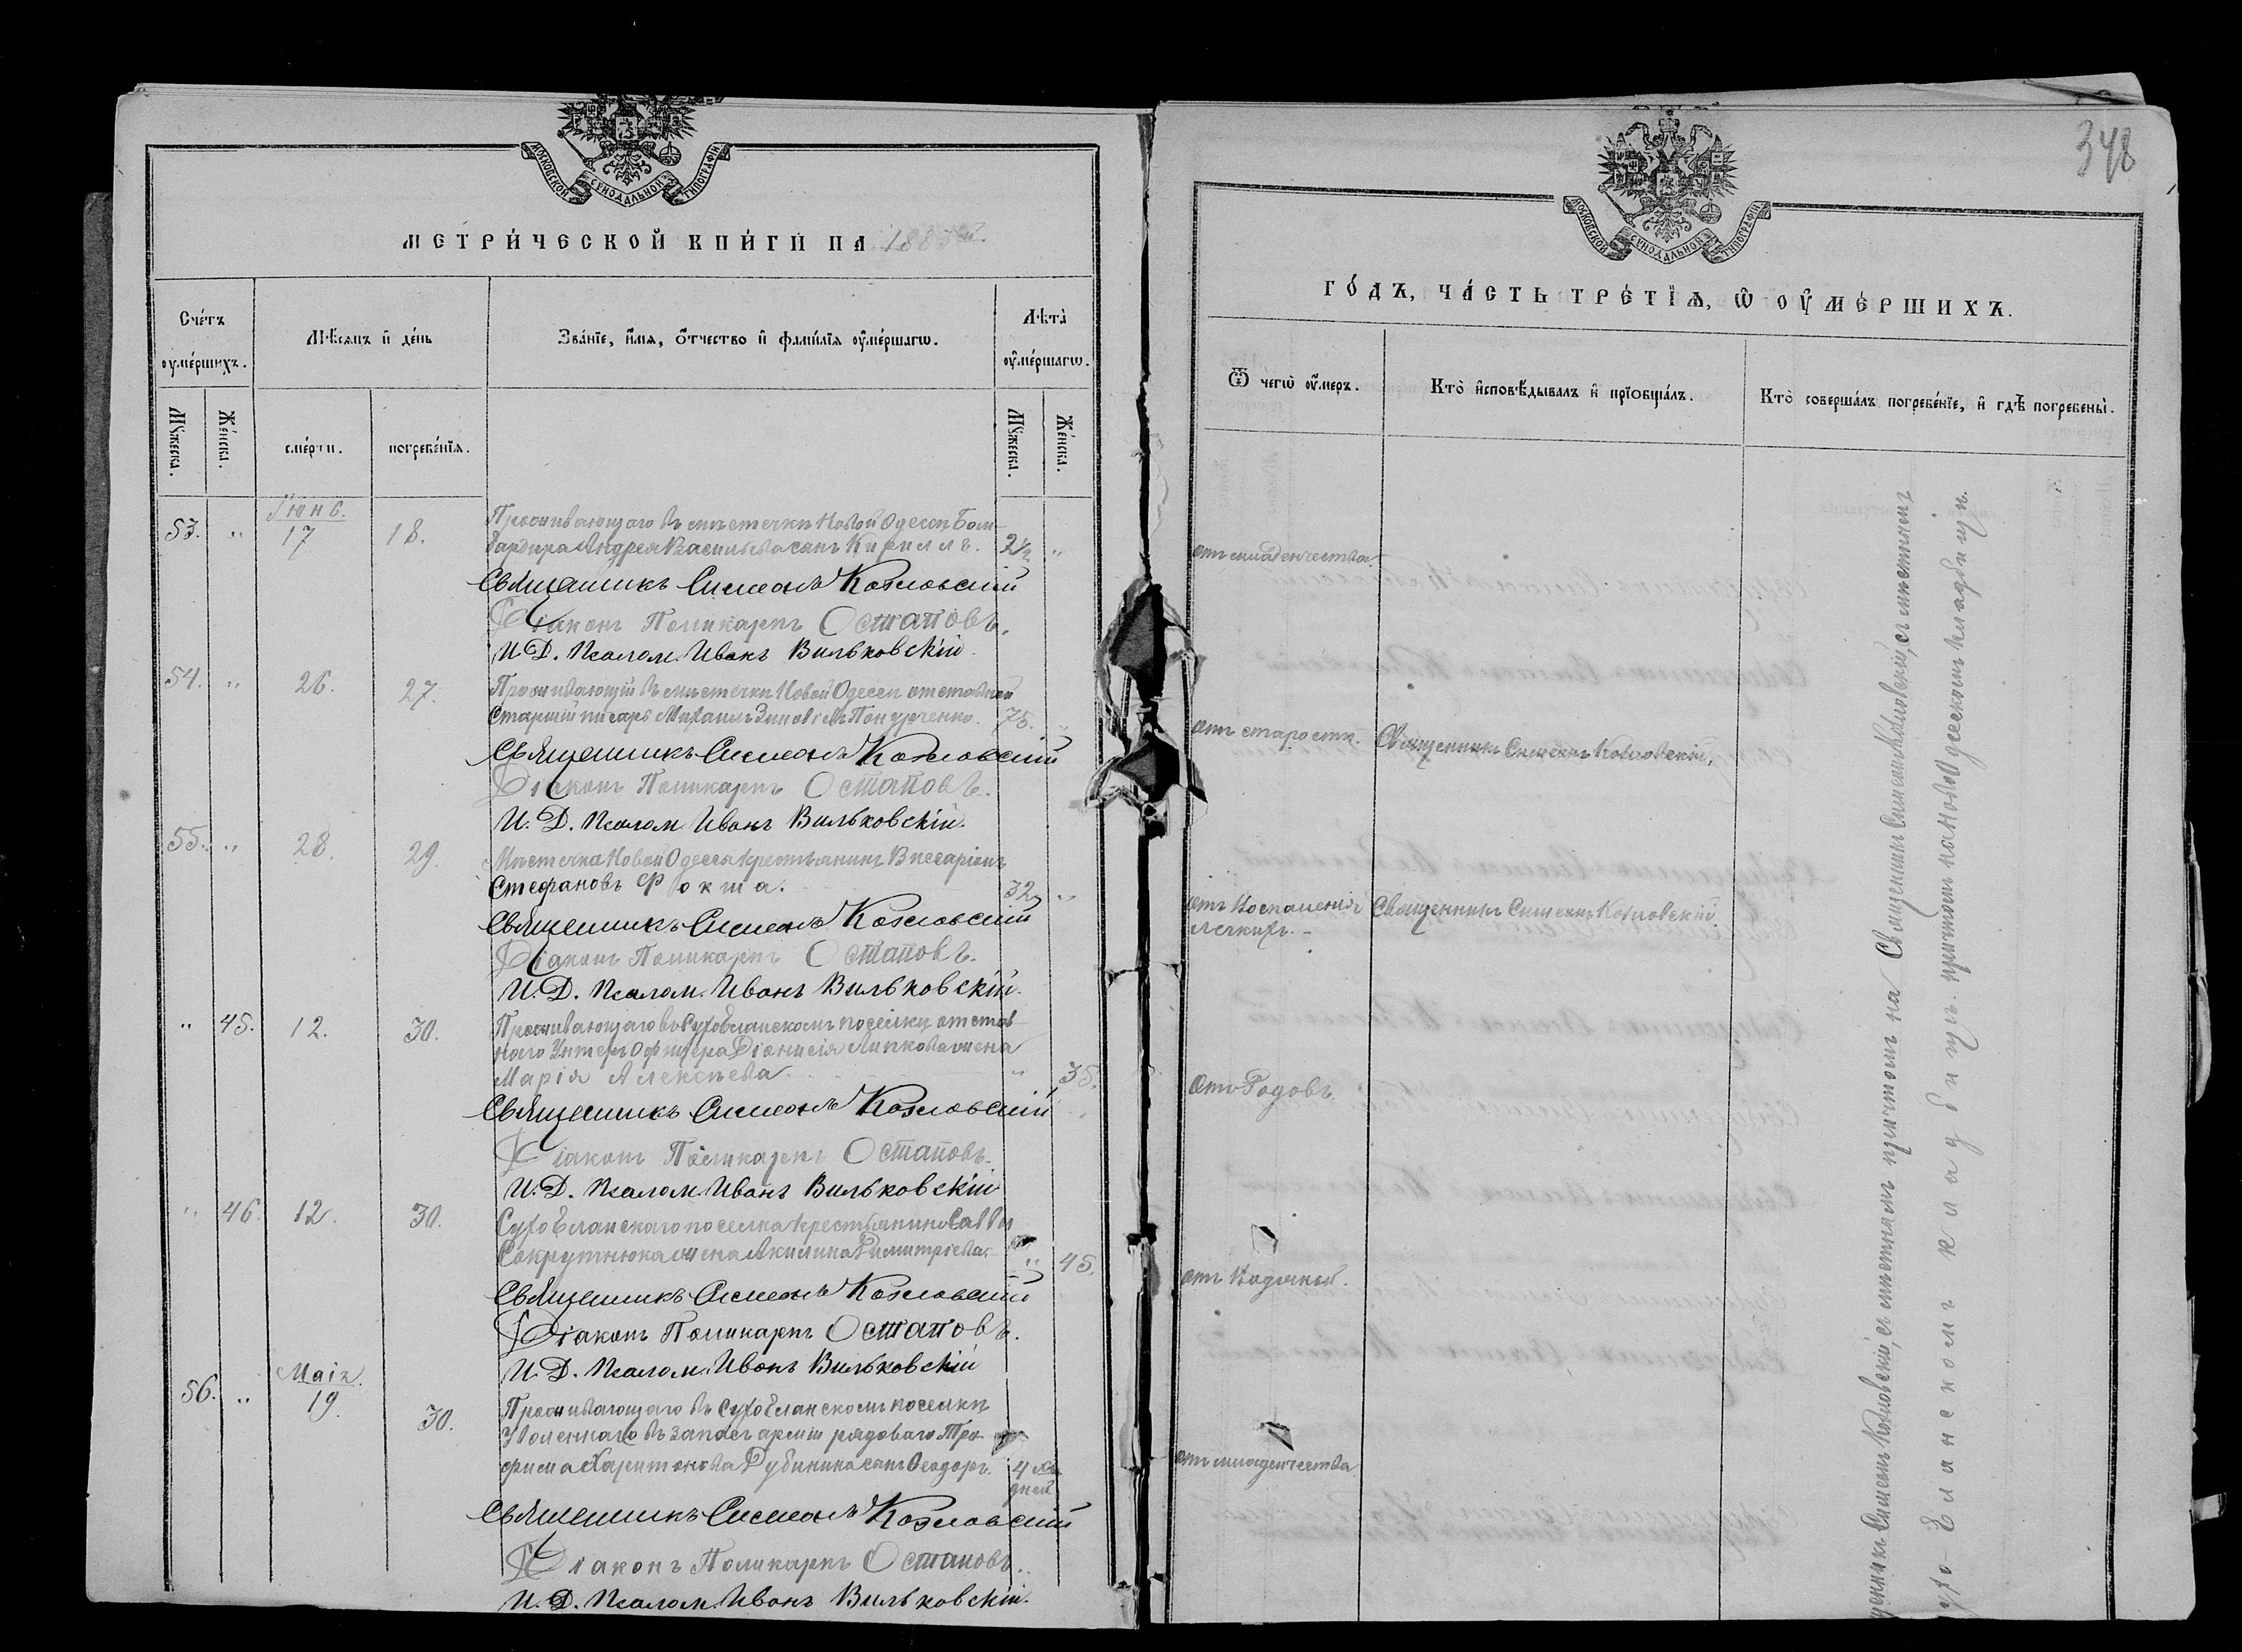 МОСКОВСКОЙ СѴНОДАЛЬНОЙ ТИПОГРАФІИ
МЕТРИ́ЧЕСКОЙ КНИ́ГИ НА 1885 ый.
Сче́тъ оумéршихъ.
Мѣ́сяцъ и҆ де́нь
Зва́нїе, и҆́мя, о҆́тчество и҆ фами́лїя оу҆ме́ршагѡ.
Лѣта̀ оу҆ме́ршагѡ.
Мꙋ́жеска.
Же́нска.
сме́рти.
погребе́нїя.
Мꙋ́жеска.
Же́нска.
Іюнь.
53. " 17 18. Проживающаго въ мѣстечкѣ Новой Одессѣ Бом-
бардира Андрея Васильева сынъ Кириллъ. 2½ "
Священникъ Симеонъ Козловскій
Діаконъ Поликарпъ Остаповъ.
И. Д. Псалом. Иванъ Вильковскій.
54. " 26. 27. Проживающій въ мѣстечкѣ Новой Одессѣ отставной
Старшій писарь Михаилъ Зиновіевъ 75. "
Священникъ Симеонъ Козловскій
Діаконъ Поликарпъ Остаповъ.
И. Д. Псалом. Иванъ Вильковскій.
55. " 28. 29. Мѣстечка Новой Одессы крестьянинъ Виссаріонъ
Стефановъ Фокша. 32 "
Священникъ Симеонъ Козловскій
Діаконъ Поликарпъ Остаповъ.
И. Д. Псалом. Иванъ Вильковскій.
" 45. 12. 30. Проживающаго въ Сухоеланскомъ поселкѣ отстав-
наго Унтеръ Офицера Діонисія Липкова жена
Марія Алексѣева " 35.
Священникъ Симеонъ Козловскій
Діаконъ Поликарпъ Остаповъ.
И. Д. Псалом. Иванъ Вильковскій
" 46. 12. 30. Сухоеланскаго поселка крестьянина Саввы
Сокрутнюка жена Акилина Димитріева. " 45.
Священникъ Симеонъ Козловскій
Діаконъ Поликарпъ Остаповъ.
И. Д. Псалом. Иванъ Вильковскій
Маія.
56. " 19. 30. Проживающаго въ Сухоеланскомъ поселкѣ
Уволеннаго въ запасъ арміи рядоваго Тро-
фима Харитонова Дубинина сынъ Ѳеодоръ. 4
дней
Священникъ Симеонъ Козловскій
Діаконъ Поликарпъ Остаповъ.
И. Д. Псалом. Иванъ Вильковскій.
348
МОСКОВСКОЙ СѴНОДАЛЬНОЙ ТИПОГРАФІИ
ГО́ДЪ, ЧА́СТЬ ТРЕ́ТЇѦ, Ѡ҆ ОУ҆МЕ́РШИХЪ.
Ѿ чегѡ̀ оу҆́меръ.
Кто̀ и҆сповѣ́дывалъ и҆ прїобща́лъ.
Кто̀ соверша́лъ погребе́нїе, и҆ гдѣ̀ погребены̀.
отъ младенчества
отъ старости. Священникъ Симеонъ Козловскій.
отъ Воспаленія Священникъ Симеонъ Козловскій.
легкихъ.
отъ Родовъ
отъ Водяной.
отъ младенчества
Священникъ Симеонъ Козловскій, съ мѣстнымъ
причтомъ на Ново Одесскомъ кладбищѣ.
Симеонъ Козловскій, съ мѣстнымъ причтомъ на
Сухо-Еланскомъ кладбищѣ.